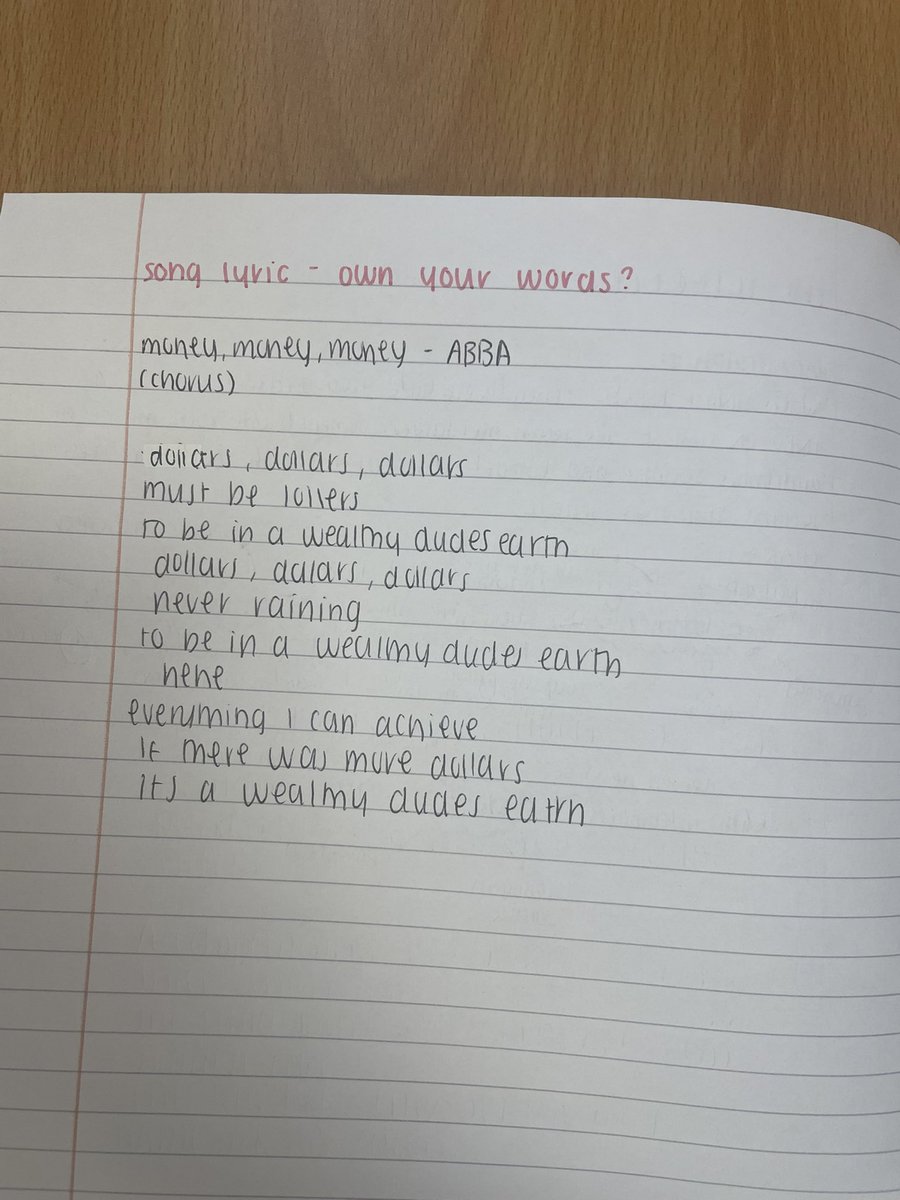 song lyric - own your words?
money, money, money - ABBA
(chorus)
dollars, dollars, dollars
must be lollers
to be in a wealthy dudes earth
dollars, dollars, dollars
never raining
to be in a wealthy dudes earth
hehe
everything i can achieve
if there was more dollars
its a wealthy dudes earth